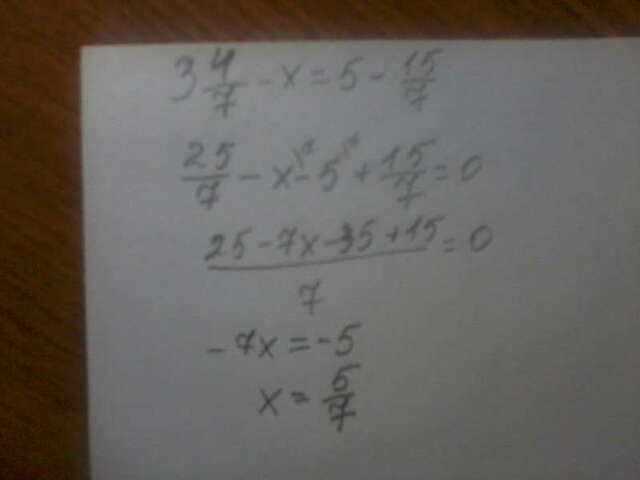 3 4/7 - x = 5 - 15/7
25/7 - x - 5 + 15/7 = 0
(25 - 7x - 35 + 15)/7 = 0
- 7x = -5
x = 5/7